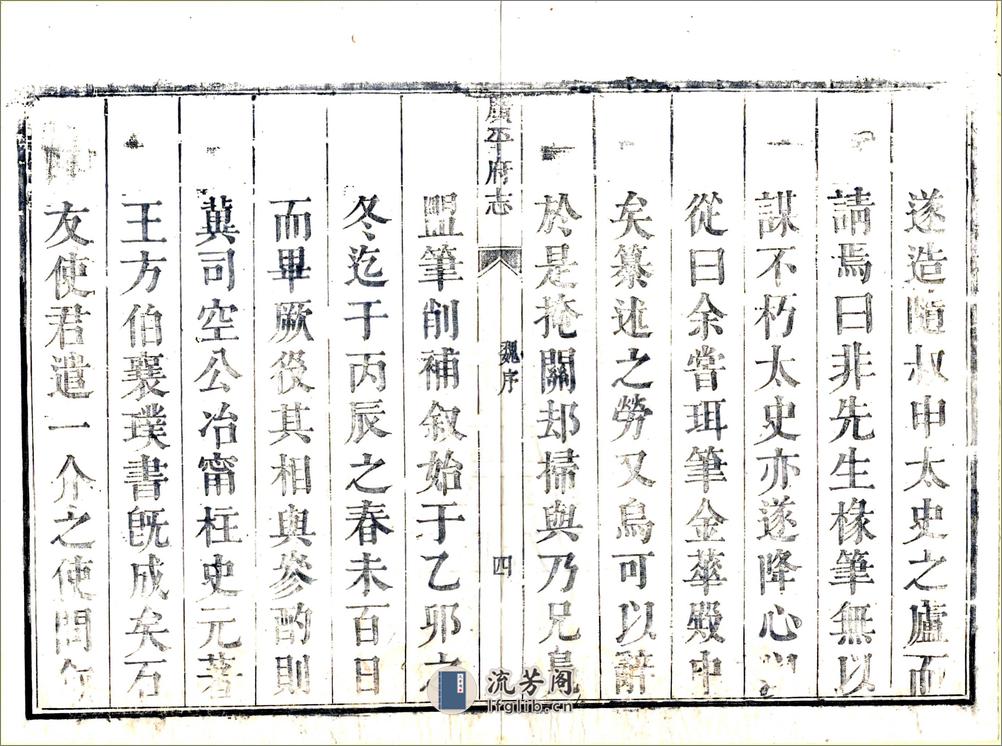 遂造隨叔申太史之廬而
請焉曰非先生椽筆無以
謀不朽太史亦遂降心
從曰余嘗珥筆金華殿中
矣纂述之勞又烏可以辭
於是掩關却掃與乃兄
廣平府志
魏序
四
盟筆削補叙始于乙卯之
冬迄于丙辰之春未百日
而畢厥役其相與參酌則
冀司空公冶甯柱史元著
王方伯襄璞書旣成矣石
友使君遣一介之使問
流芳阁
lfglib.cn